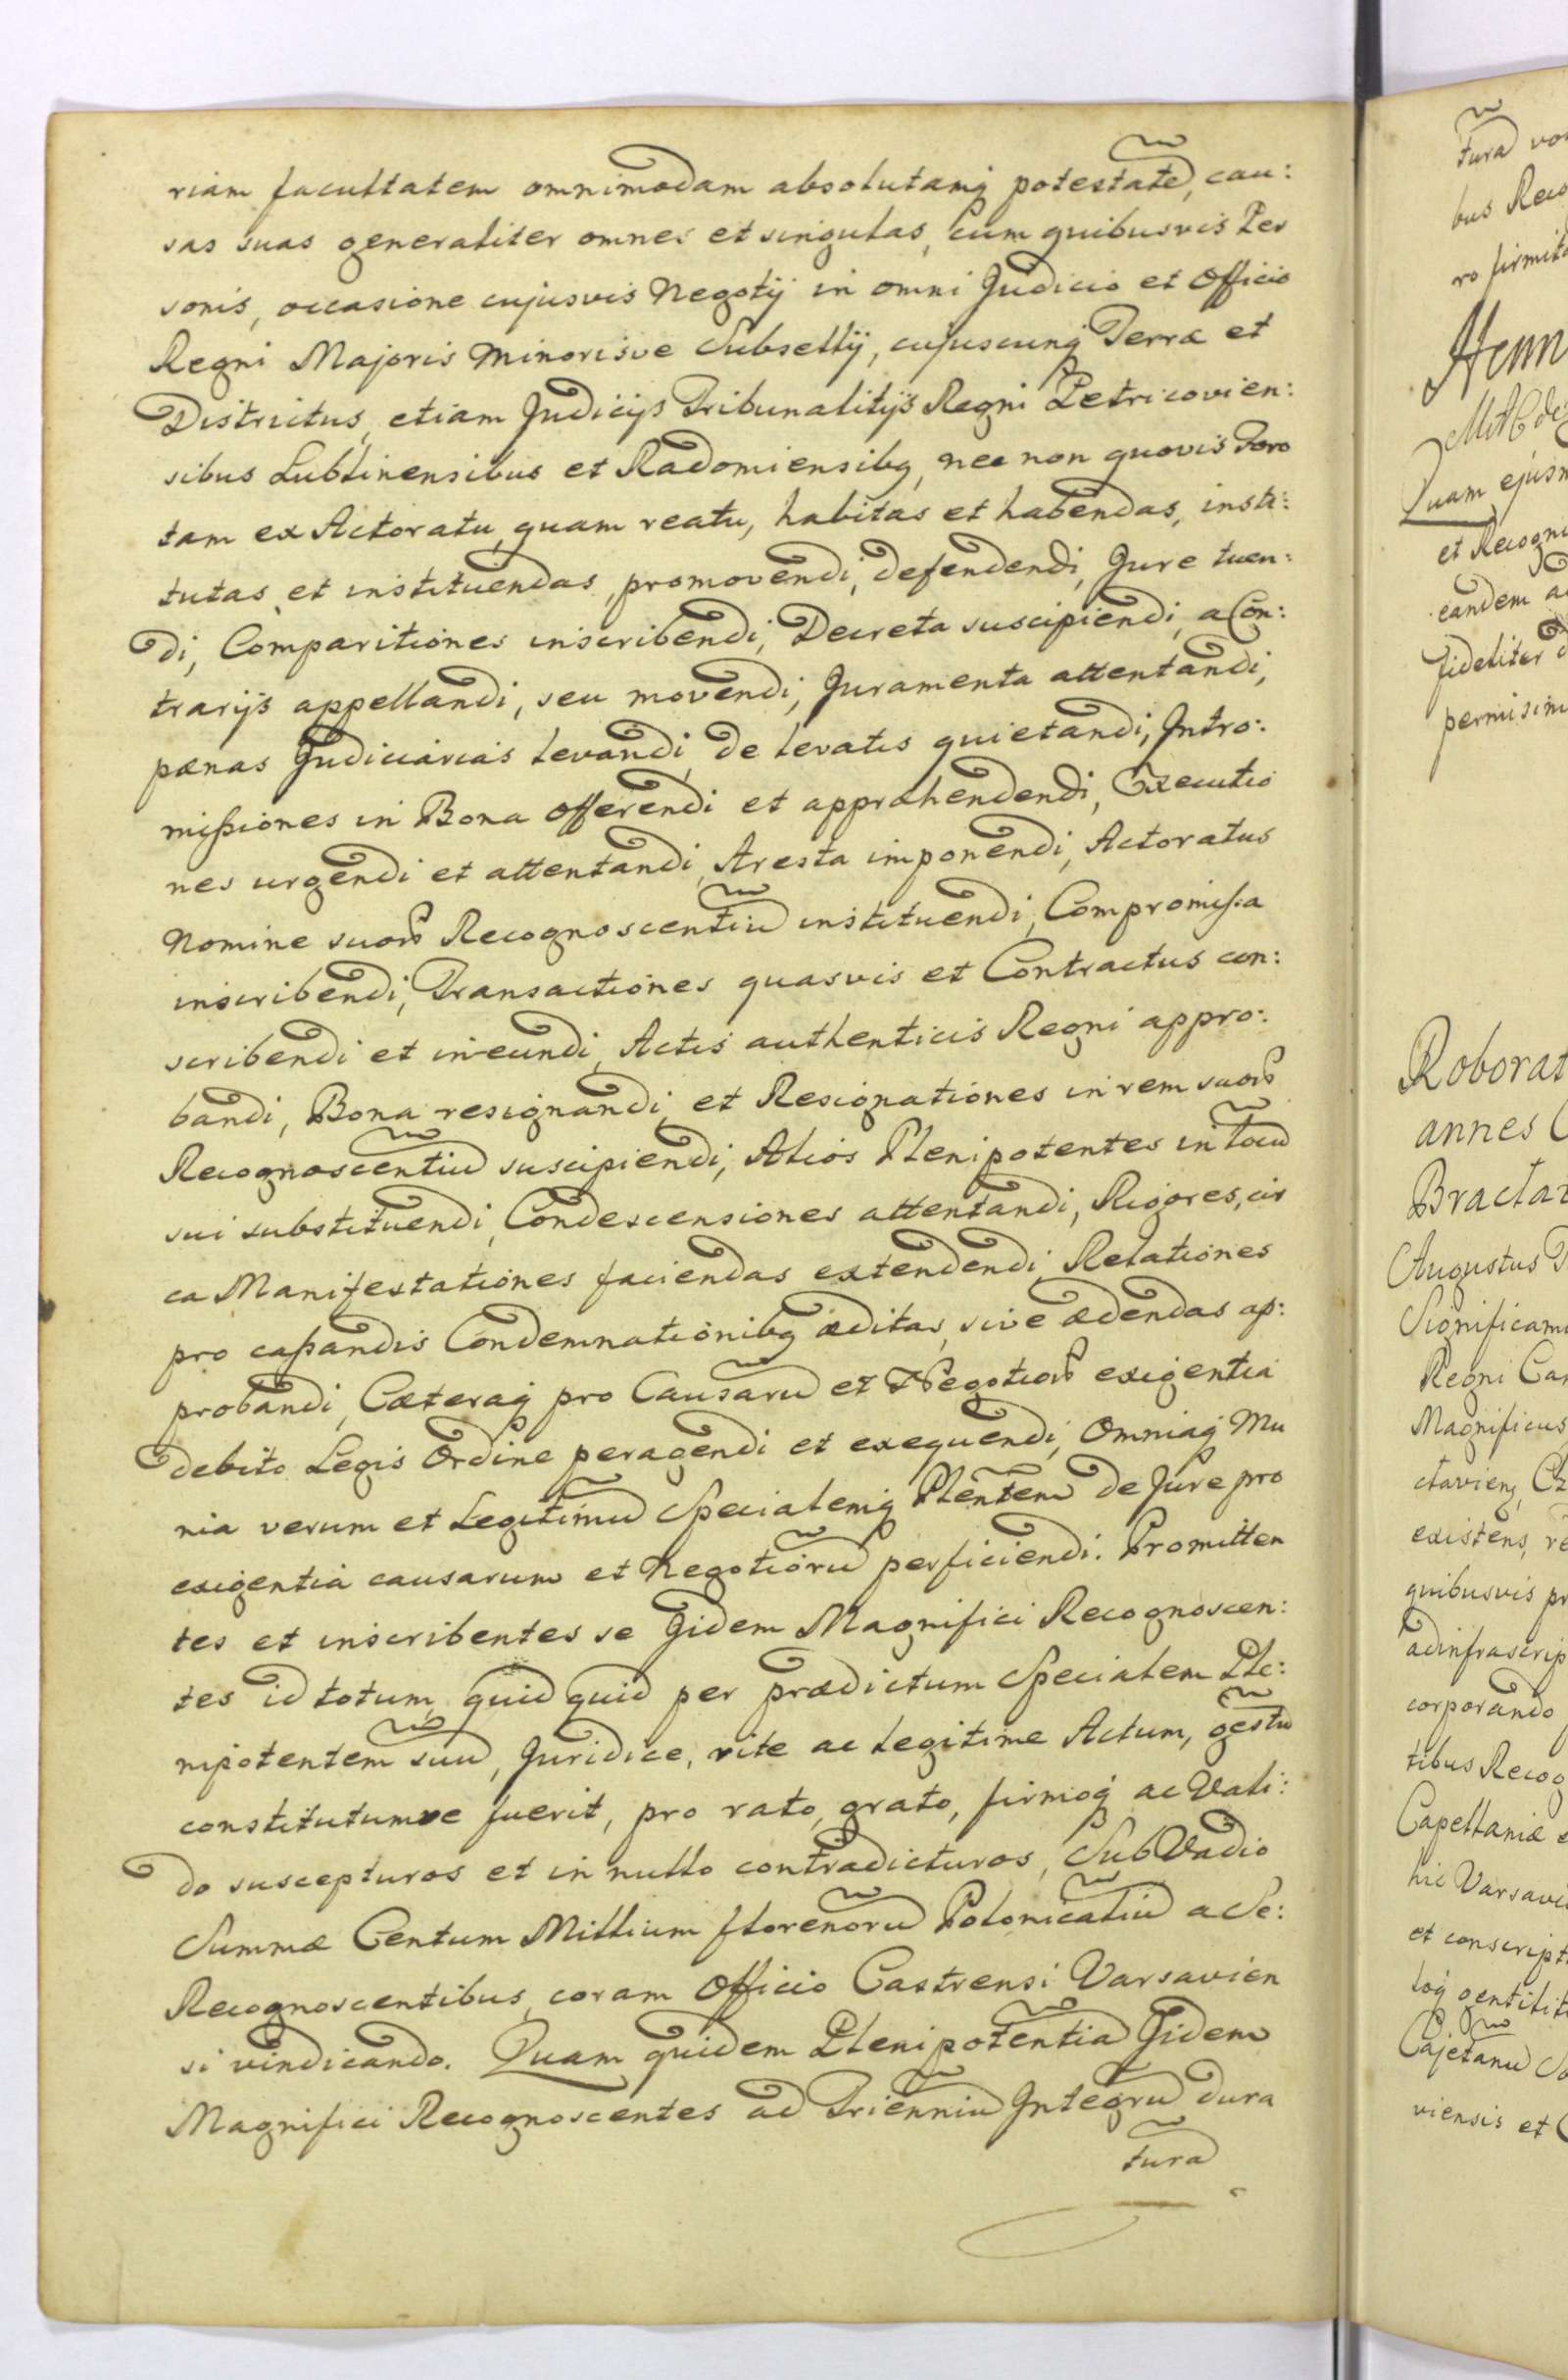 riam facultatem omnimodam absolutamq potestatẽ, cau:
sas suas generaliter omnes et singulas, cum quibusvis Per
sonis, occasione cujusvis Negotij in omni Judicio et Officio
Regni Majoris Minorisve Subsellij, cujuscunq Terræ et
Districtus, etiam Judicijs Tribunalitijs Regni Petricovien:
sibus Lublinensibus et Radomiensibq, nec non quovis Foro
tam ex Actoratu quam reatu, habitas et habendas, insti:
tutas et instituendas, promovendi, defendendi, Jure tuen:
di, Comparitiones inscribendi, Decreta suscipiendi, a Con:
trarijs appellandi, seu movendi, Juramenta attentandi,
pænas Judiciarias levandi, de levatis quietandi, Intro:
missiones in Bona offerendi et appræhendendi, Executio
nes urgendi et attentandi, Aresta imponendi, Actoratus
Nomine suorũ Recognoscentiũ instituendi, Compromissa
inscribendi, Transactiones quasvis et Contractus con:
scribendi et ineundi, Actis authenticis Regni appro:
bandi, Bona resignandi, et Resignationes in rem suorũ
Recognoscentiũ suscipiendi, Alios Plenipotentes in locũ
sui substituendi, Condescensiones attentandi, Rigores, cir
ca Manifestationes faciendas extendendi, Relationes
pro cassandis Condemnationibq æditas, sive ædendas ap:
probandi, Cæteraq pro Causarũ et Negotiorũ exigentia
debito Legis Ordine peragendi et exequendi, Omniaq Mu
nia verum et Legitimũ Specialemq Plentem de Jure pro
exigentia causarum et Negotiorũ perficiendi. Promitten
tes et inscribentes se Jidem Magnifici Recognoscen:
tes id totum, quid quid per prædictum Specialem Ple:
nipotentem suũ, Juridice, rite ac legitime Actum, gestũ
constitutumve fuerit, pro rato, grato, firmoq ac Vali:
do suscepturos et in nullo contradicturos, Sub Vadio
Summæ Centum Millium florenorũ Polonicaliũ a Se:
Recognoscentibus, coram Officio Castrensi Varsavien
si vindicando. Quam quidem Plenipotentiã Jidem
Magnifici Recognoscentes ad Trienniũ Integrũ dura
turã
turã
bus
Quam
et
eandem
fideliter
Roborat
annes
Augustus
Regni
Magnificus
existens,
quibusvis
corporando
tibus
Capellaniæ
hic
Cajetanũ
viensis et